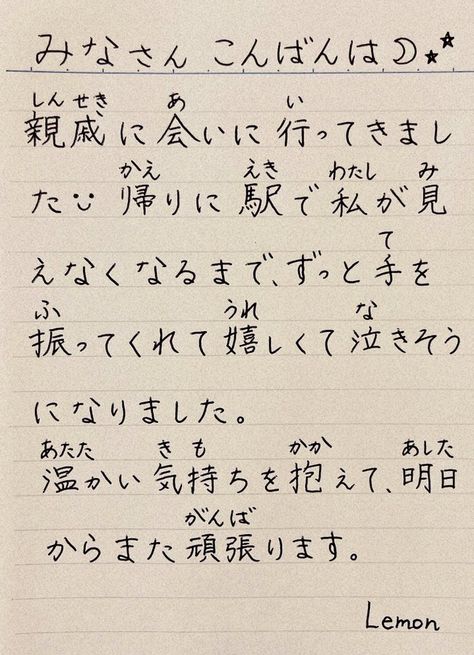 みなさん こんばんは☽⋆⋆
しんせき あ い
親戚に会いに行ってきまし
かえ えき わたし み
た 帰りに駅で私が見
て
えなくなるまで、ずっと手を
ふ うれ な
振ってくれて嬉しくて泣きそう
になりました。
あたた きも かか あした
温かい気持ちを抱えて、明日
がんば
からまた頑張ります。
Lemon